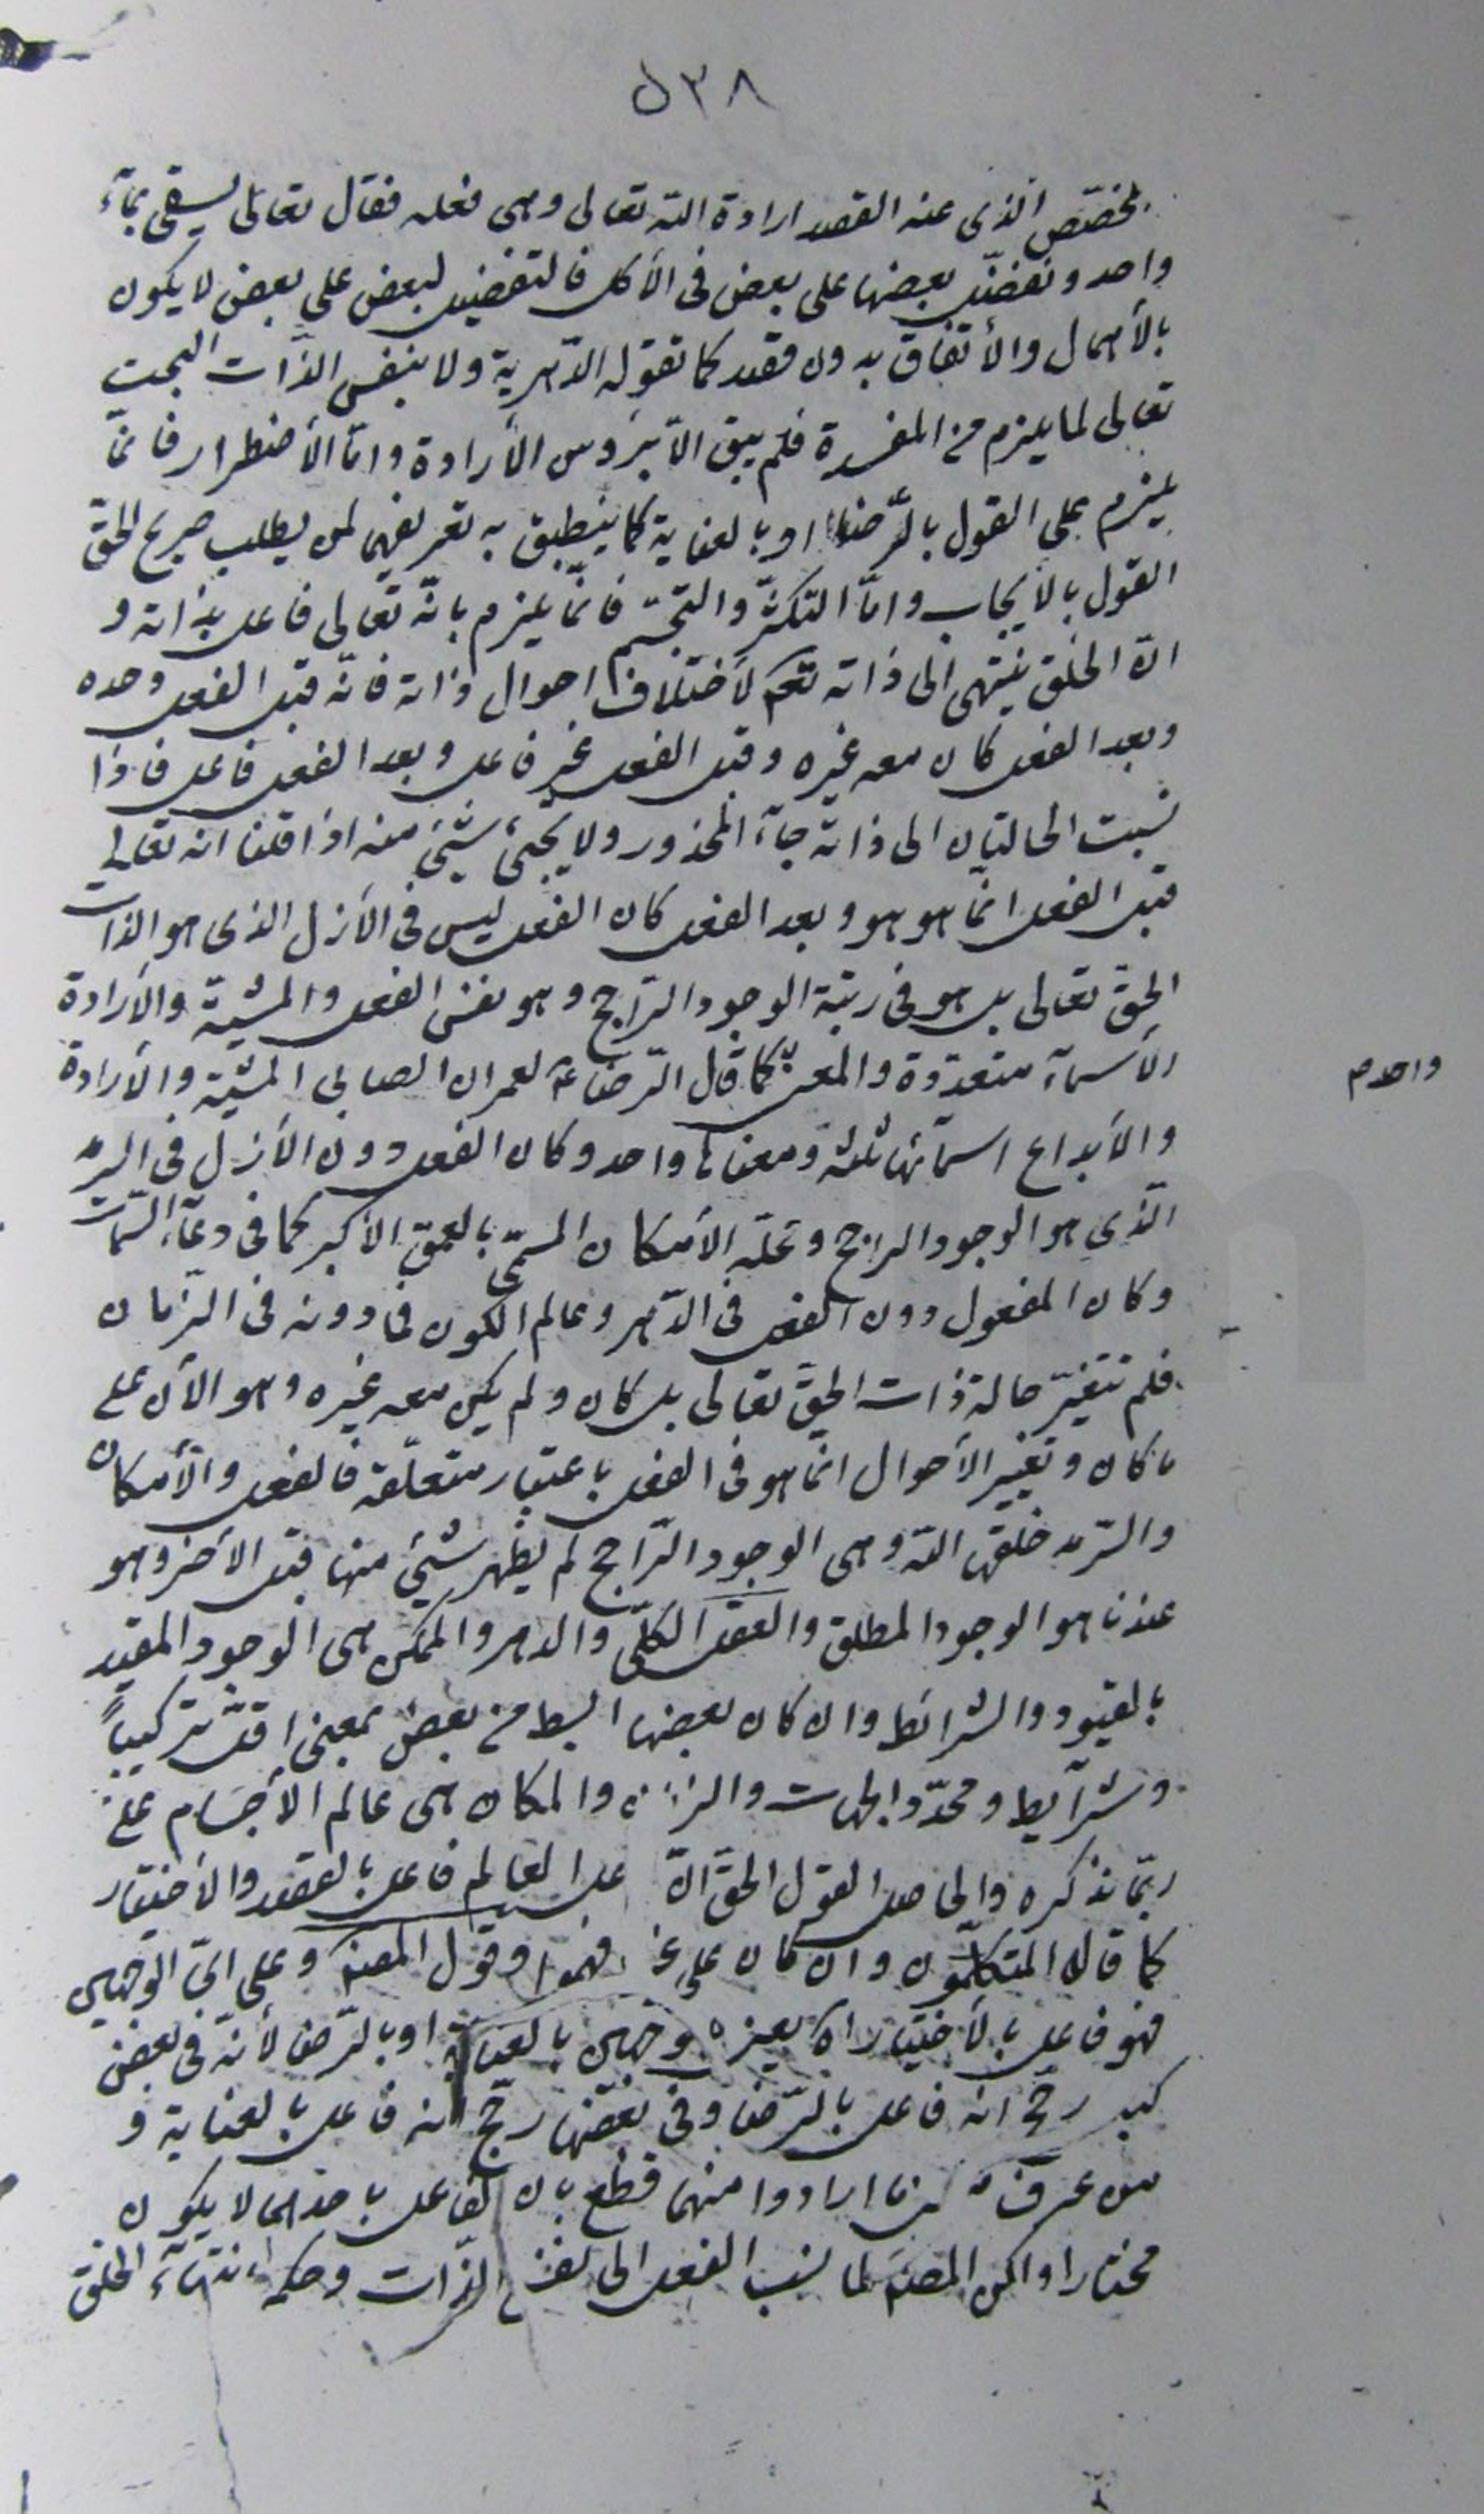 ٥٣٨
لمخصّص الّذى عنه القصد ارادة اللّه تعالى وهى فعله فقال تعالى يسقى بمآء
واحد ونفضّل بعضها على بعض فى الأكل فالتفضيل لبعض على بعض لا يكون
بالأهمال والأتفاق بدون قصد كما تقوله الدّهرية ولا بنفس الذّات البحت
تعالى لما يلزم من المفسدة فلم يبق الّا بثروس الأرادة وامّا الأضطرار فانّما
يلزم على القول بالرّضا او بالعناية كما ينطبق به تعريفهما لمن يطلب صريح الحقّ
القول بالأيجاب وامّا التكثّر والتجسّم فانّما يلزم بانّه تعالى فاعل بذاته و
انّ الخلق ينتهى الى ذاته لأختلاف احوال ذاته فانّه قبل الفعل وحده
وبعد الفعل كان معه غيره وقبل الفعل غير فاعل وبعد الفعل فاعل فاذا
نسبت الحالتان الى ذاته جآء المحذور ولا يجئ شئ منه اذا قلنا انه تعالى
قبل الفعل انّما هو هو وبعد الفعل كان الفعل ليس فى الأزل الذى هو الذات
الحقّ تعالى بل هو فى رتبة الوجود الرّاجح وهو نفس الفعل والمشيّة والأرادة
الأسمآء متعدّدة والمعنى كما قال الرّضا ع لعمران الصابى المشيّة والأرادة
واحد م
والأبداع اسمآئها ثلثة ومعناها واحد وكان الفعل دون الأزل فى السّرمد
الّذى هو الوجود الراجح ومحلّه الأمكان المسمّى بالعمق الأكبر كما فى دعآء السّمات
وكان المفعول دون الفعل فى الدّهر وعالم الكون فما دونه فى الزّمان
فلم تتغيّر حالة ذات الحقّ تعالى بل كان ولم يكن معه غيره وهو الأن على
ما كان وتغيير الأحوال انّما هو فى الفعل باعتبار متعلّقه فالفعل والأمكان
والسّرمد خلقها اللّه وهى الوجود الرّاجح لم يظهر شئ منها قبل الأخر وهو
عندنا هو الوجود المطلق والعقل الكلّى والدهر والممكن هى الوجود المقيد
بالقيود والشرائط وان كان بعضها ابسط من بعض بمعنى اقلّ تركيباً
وشرآيط ومحدّد الجهات والزمان والمكان هى عالم الأجسام على
ربّما نذكره والحاصل القول الحقّ انّ العالم فاعل بالقصد والأختيار
كما قاله المتكلّمون وان كان على غير فهموا وقول المصنف وعلى اىّ الوجهين
فهو فاعل بالأختيار وجهين بالعناية او بالرّضا لأنّه فى بعض
كتبه رجّح انه فاعل بالرّضا وفى بعضها رجّح انه فاعل بالعناية و
من عرف ارادوا منهما قطع بان الفاعل باحدهما لا يكون
مختارا ولكن المصنف لما نسب الفعل الى نفس الذّات وحكم بانتهآء الخلق